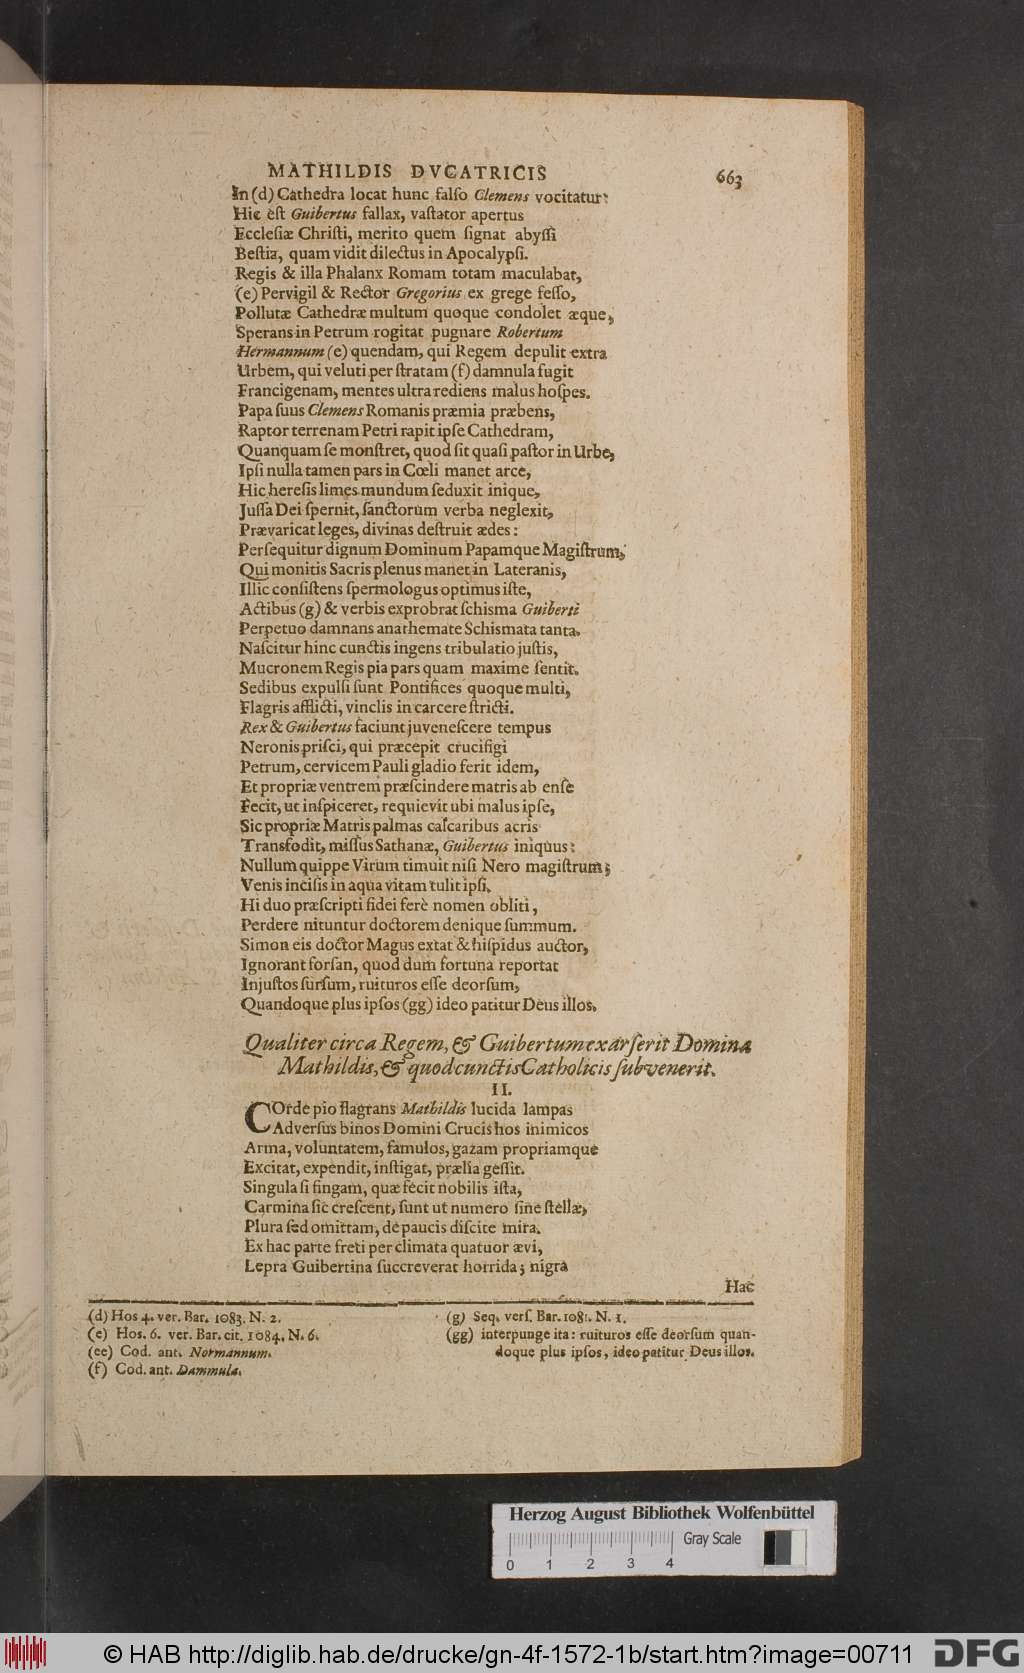 MATHILDIS DVCATRICIS 663
In (d) Cathedra locat hunc falſo Clemens vocitatur:
Hic eſt Guibertus fallax, vaſtator apertus
Eccleſiæ Chriſti, merito quem ſignat abyſſi
Beſtia, quam vidit dilectus in Apocalypſi.
Regis & illa Phalanx Romam totam maculabat,
(e) Pervigil & Rector Gregorius ex grege feſſo,
Pollutæ Cathedræ multum quoque condolet æque,
Sperans in Petrum rogitat pugnare Robertum
Hermannum (e) quendam, qui Regem depulit extra
Urbem, qui veluti per ſtratam (f) damnula fugit
Francigenam, mentes ultra rediens malus hoſpes.
Papa ſuus Clemens Romanis præmia præbens,
Raptor terrenam Petri rapit ipſe Cathedram,
Quanquam ſe monſtret, quod ſit quaſi paſtor in Urbe,
Ipſi nulla tamen pars in Cœli manet arce,
Hic hereſis limes mundum ſeduxit inique,
Juſſa Dei ſpernit, ſanctorum verba neglexit,
Prævaricat leges, divinas deſtruit ædes:
Perſequitur dignum Dominum Papamque Magiſtrum,
Qui monitis Sacris plenus manet in Lateranis,
Illic conſiſtens ſpermologus optimus iſte,
Actibus (g) & verbis exprobrat ſchisma Guiberti
Perpetuo damnans anathemate Schismata tanta.
Naſcitur hinc cunctis ingens tribulatio juſtis,
Mucronem Regis pia pars quam maxime ſentit.
Sedibus expulſi ſunt Pontifices quoque multi,
Flagris afflicti, vinclis in carcere ſtricti.
Rex & Guibertus faciunt juveneſcere tempus
Neronis priſci, qui præcepit crucifigi
Petrum, cervicem Pauli gladio ferit idem,
Et propriæ ventrem præſcindere matris ab enſe
Fecit, ut inſpiceret, requievit ubi malus ipſe,
Sic propriæ Matris palmas calcaribus acris
Transfodit, miſſus Sathanæ, Guibertus iniquus:
Nullum quippe Virum timuit niſi Nero magiſtrum;
Venis inciſis in aqua vitam tulit ipſi.
Hi duo præſcripti fidei ferè nomen obliti,
Perdere nituntur doctorem denique ſummum.
Simon eis doctor Magus extat & hiſpidus auctor,
Ignorant forſan, quod dum fortuna reportat
Injuſtos ſurſum, ruituros eſſe deorſum,
Quandoque plus ipſos (gg) ideo patitur Deus illos.
Qualiter circa Regem, & Guibertum exarſerit Domina
Mathildis, & quod cunctis Catholicis ſubvenerit.
II.
COrde pio flagrans Mathildis lucida lampas
Adverſus binos Domini Crucis hos inimicos
Arma, voluntatem, famulos, gazam propriamque
Excitat, expendit, inſtigat, prælia geſſit.
Singula ſi fingam, quæ fecit nobilis iſta,
Carmina ſic creſcent, ſunt ut numero ſine ſtellæ,
Plura ſed omittam, de paucis diſcite mira.
Ex hac parte freti per climata quatuor ævi,
Lepra Guibertina ſuccreverat horrida; nigra
Hac
(d) Hos 4. ver. Bar. 1083. N. 2.
(e) Hos. 6. ver. Bar. cit. 1084. N. 6.
(ee) Cod. ant. Normannum.
(f) Cod. ant. Dammula.
(g) Seq. verſ. Bar. 1081. N. 1.
(gg) interpunge ita: ruituros eſſe deorſum quan-
doque plus ipſos, ideo patitur Deus illos.
Herzog August Bibliothek Wolfenbüttel
Gray Scale
0 1 2 3 4
© HAB http://diglib.hab.de/drucke/gn-4f-1572-1b/start.htm?image=00711 DFG